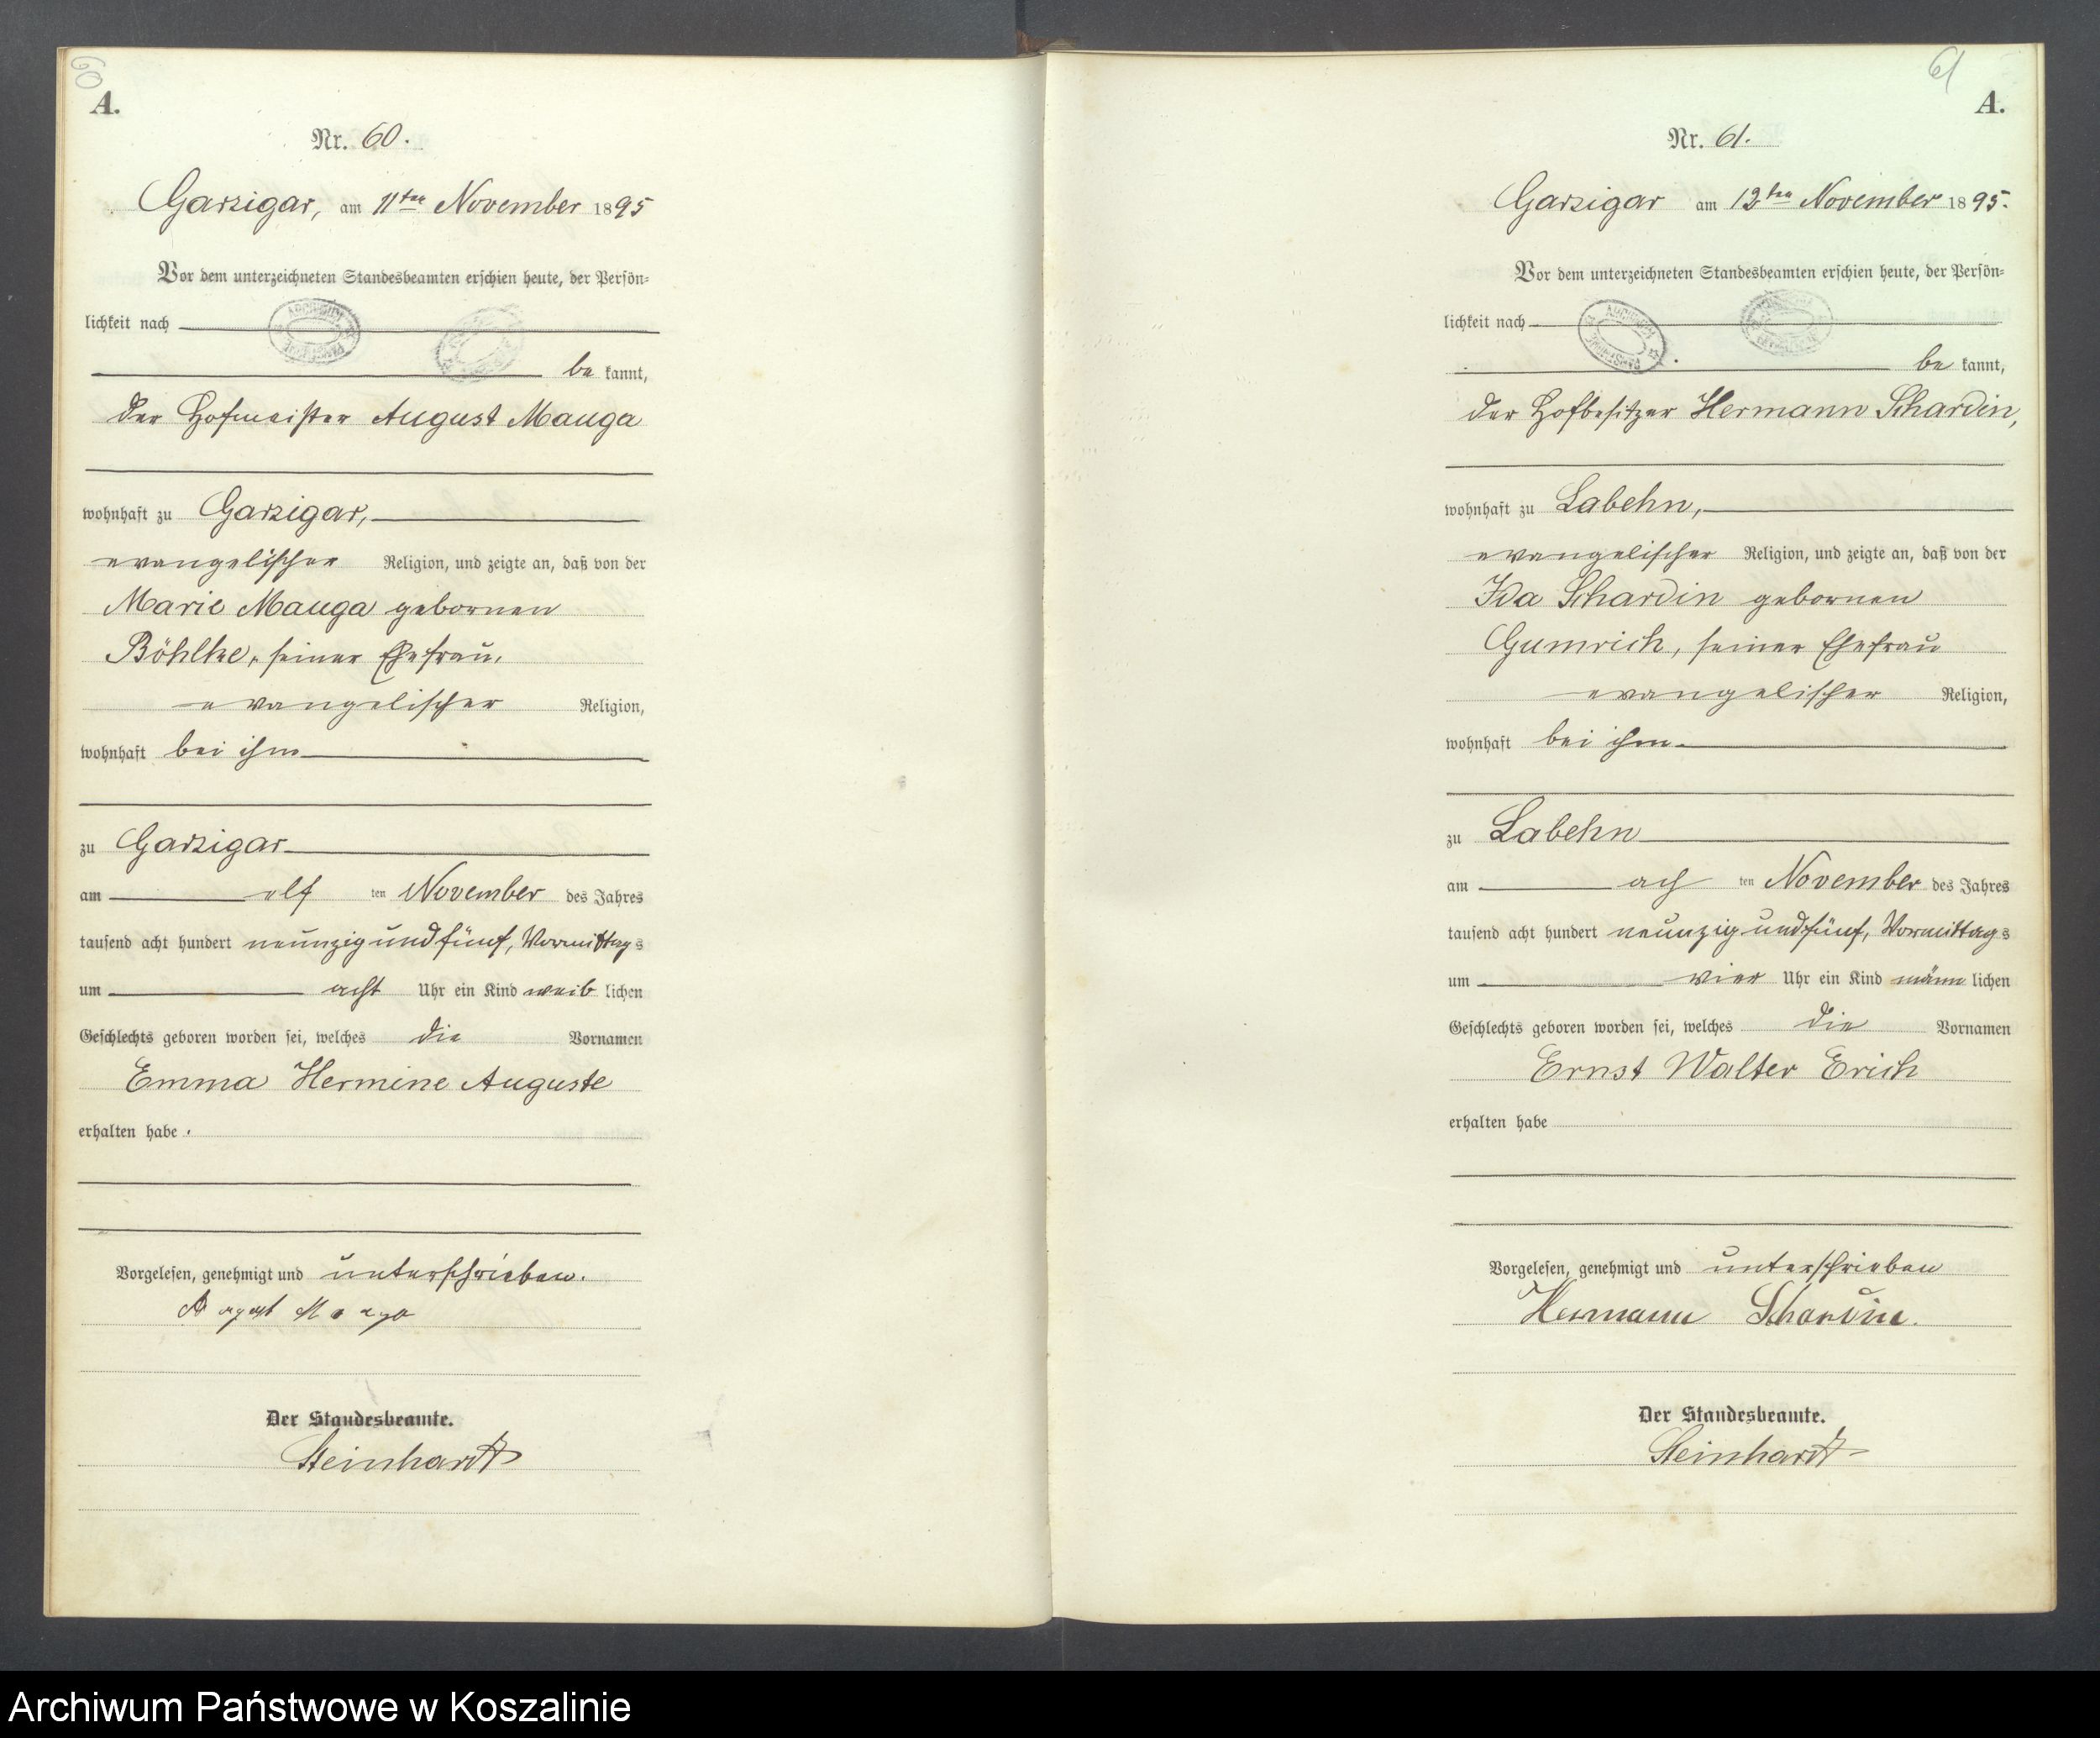 60
A.
Nr. 60.
Garzigar, am 11ten November 1895
Vor dem unterzeichneten Standesbeamten erschien heute, der Persön=
lichkeit nach
be kannt,
der Hofmeister August Mauga
wohnhaft zu Garzigar,
evangelischer Religion, und zeigte an, daß von der
Marie Mauga gebornen
Böhlke, seiner Ehefrau,
evangelischer Religion,
wohnhaft bei ihm
zu Garzigar
am elf ten November des Jahres
tausend acht hundert neunzig und fünf, Vormittags
um acht Uhr ein Kind weib lichen
Geschlechts geboren worden sei, welches die Vornamen
Emma Hermine Auguste
erhalten habe.
Vorgelesen, genehmigt und unterschrieben.
August Mauga
Der Standesbeamte.
Steinhardt
61
A.
Nr. 61.
Garzigar am 12ten November 1895.
Vor dem unterzeichneten Standesbeamten erschien heute, der Persön=
lichkeit nach
be kannt,
der Hofbesitzer Hermann Schardin,
wohnhaft zu Labehn,
evangelischer Religion, und zeigte an, daß von der
Ida Schardin gebornen
Gumrich, seiner Ehefrau
evangelischer Religion,
wohnhaft bei ihm
zu Labehn
am ach ten November des Jahres
tausend acht hundert neunzig und fünf, Vormittags
um vier Uhr ein Kind männ lichen
Geschlechts geboren worden sei, welches die Vornamen
Ernst Walter Erich
erhalten habe
Vorgelesen, genehmigt und unterschrieben
Hermann Schardin.
Der Standesbeamte.
Steinhardt
Archiwum Państwowe w Koszalinie